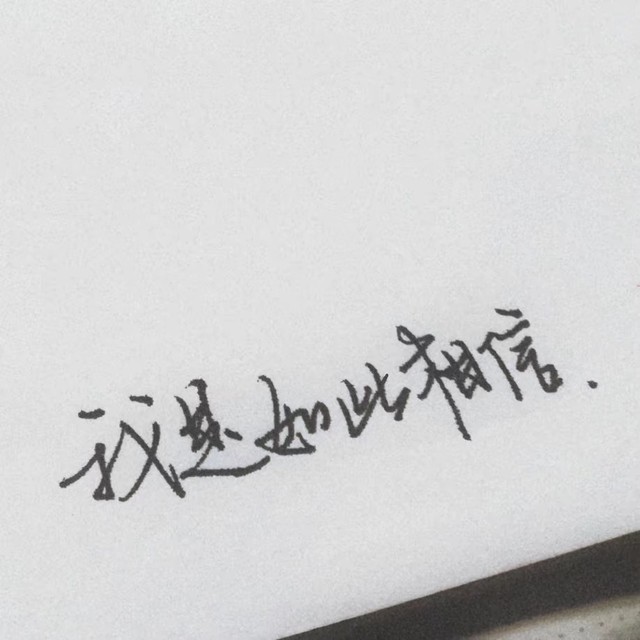 我是如此相信.